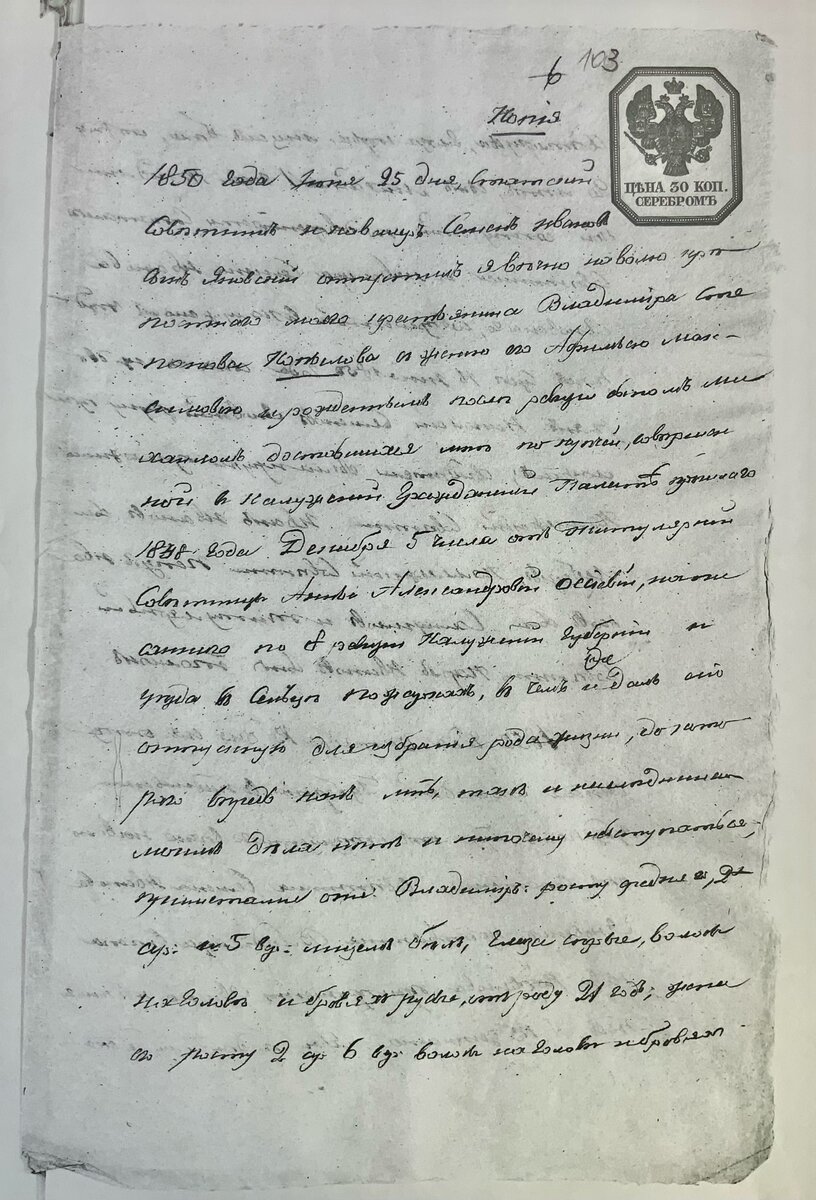 6 103
Копія
ЦѢНА 30 КОП.
СЕРЕБРОМЪ
1850 года Іюня 25 дня, Статскій
Совѣтникъ и кавалеръ Семенъ Иванов
сынъ Яновскій отпустилъ я вѣчно на волю крѣ
постнаго моего крестьянина Владиміра Сте
панова Копылова с женою его Афимьею Мак-
симовою и рожденнымъ послѣ ревизіи сыномъ Ми
хаиломъ доставшихся мнѣ по купчей, совершен
ной в Калужской Гражданской Палатѣ прошлаго
1848 года Декабря 5 числа отъ Титулярной
Совѣтницы Анны Александровой написа
саннаго по 8 ревизіи Калужской Губерніи и
уѣзда в Сельцѣ въ чемъ и далъ сію
отпускную для избранія рода жизни, до кото
раго впредь какъ мнѣ, такъ и наслѣдникамъ
моимъ дѣла нѣтъ и ни почему не вступаться,
примѣтами онъ Владиміръ: росту средняго, 2
ар: и 5 вер: лицемъ бѣлъ, глаза сѣрые, волосы
на головѣ и бровяхъ русые, отъ роду 21 годъ; жена
его росту 2 ар 6 вер волосы на головѣ и бровяхъ